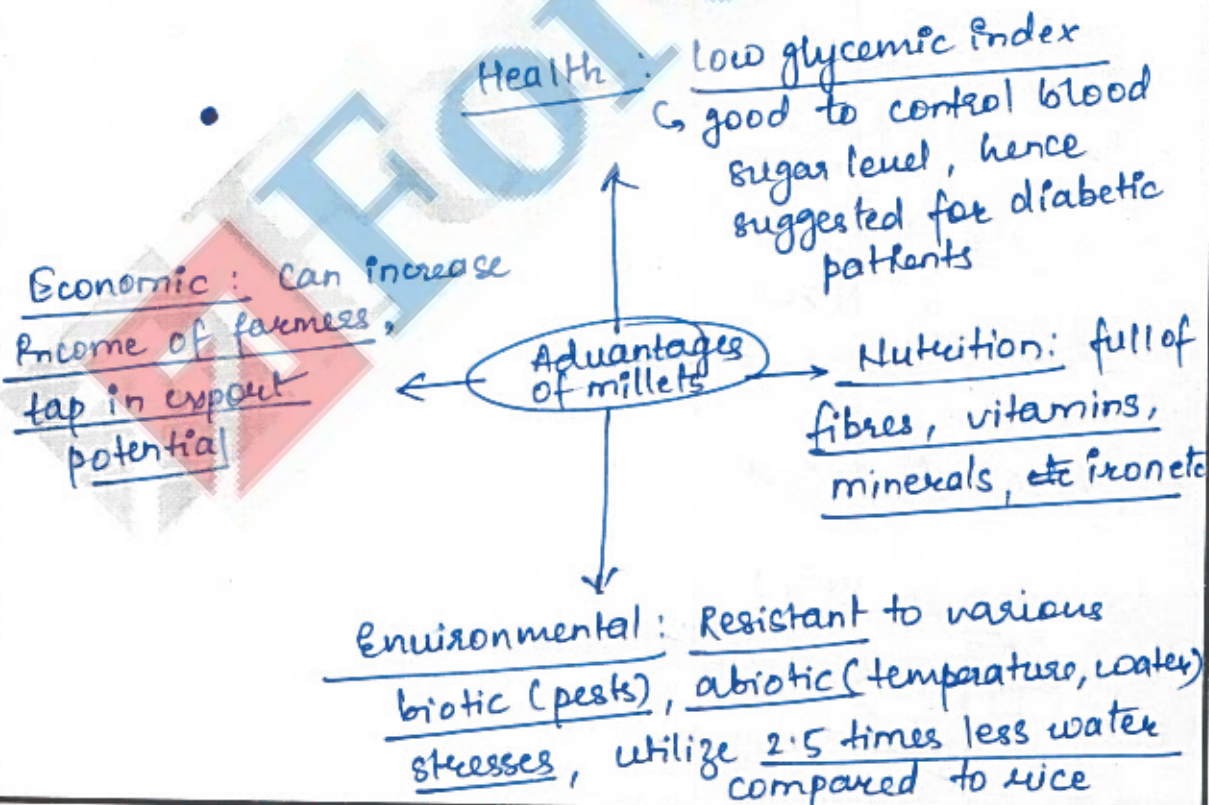 Health : low glycemic index
↳ good to control blood
sugar level, hence
suggested for diabetic
patients
Economic : Can increase
income of farmers,
tap in export
potential
Advantages
of millets
Nutrition: full of
fibres, vitamins,
minerals, etc iron etc
Environmental : Resistant to various
biotic (pests), abiotic (temperature, water)
stresses, utilize 2.5 times less water
compared to rice